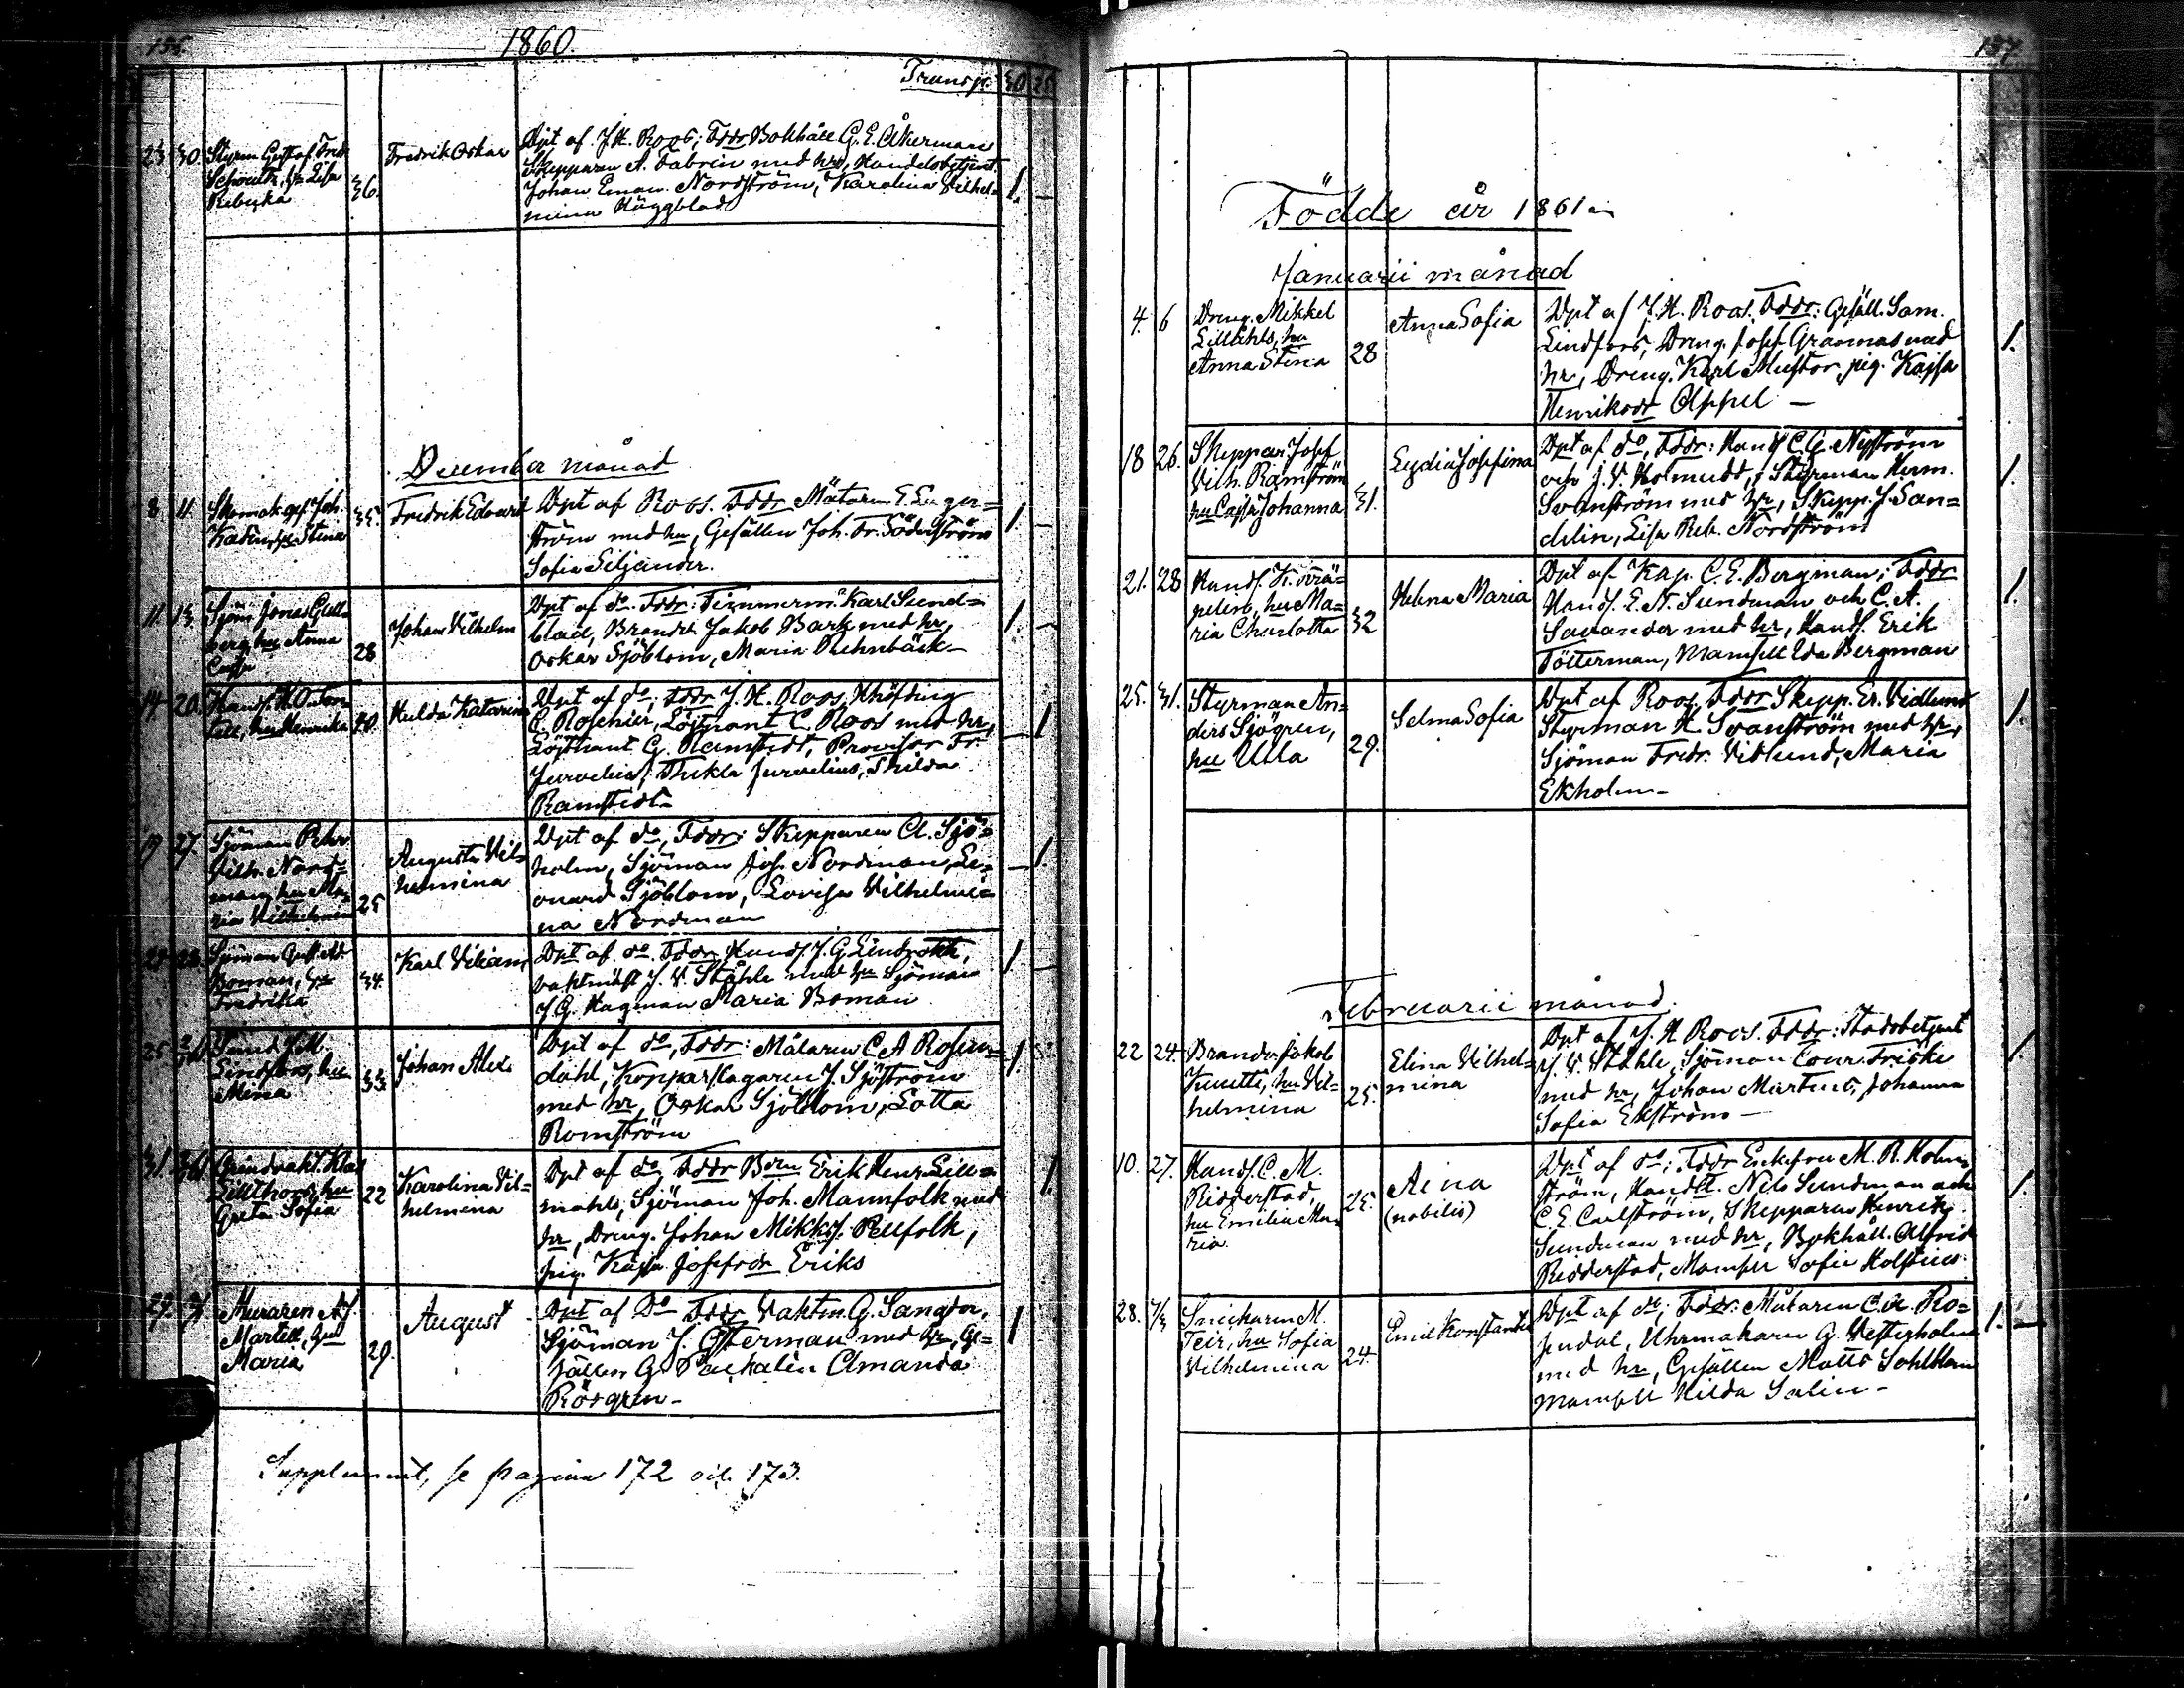 1860.
Transp. 30 25
23 30 Styrm Gustaf Fredr
Schoultz, hu Lisa
Rebecka
36.
Fredrik Oskar
Dpt af J. H. Roos; Fddr Bokhåll G. E. Åkerman
Skepparen A. Dabrin med hr, Handelsbetjent
Johan Eman. Nordström, Karolina Vilhel-
mina Häggblad
December månad
8. 11. Skomak. ges. Joh.
hu Stina
35.
Fredrik Edvard
Dpt af Roos. Fddr Mätaren E. Enger=
ström med hu, Gesällen Joh. Fr. Söderström
Sofia Siljander.
11. 13. Sjöm. Jonas Gull
berg, hu Anna
Cajsa
28
Johan Vilhelm
Dpt af do. Fddr: Timmerm. Karl Sund=
blad, Brandv. Jakob Bark med hr,
Oskar Sjöblom, Maria Rehnbäck
14. 20. hu Henrika
40.
Hulda Katarina
Dpt af do; Fddr J. H. Roos, Khöfding
C. Roschier, Löjtnant C. Roos med hr,
Löjtnant G. Ramstedt, Provisor Fr.
Jurvelius, Thekla Jurvelius, Thilda
Ramstedt
19 27. Sjöman Pehr
Vilh. Nord=
man, hu Ma-
ria Vilhelmina
25
Augusta Vil=
helmina
Dpt af do, Fddr: Skepparen A. Sjö=
holm, Sjöman Jos. Nordman, Le=
onard Sjöblom, Lovisa Vilhelmi=
na Nordman
Sjöman Gust. Ad.
Boman, hu
Fredrika
34
Karl Viliam
Dpt af do. Fddr Handl. J. G. Lindroth,
vaktmäst J. V. Ståhle med hu Sjöman
J G. Hagman Maria Boman
25.
Lindfors, hu
Mina
33.
Johan Alex.
Dpt af do, Fddr: Målaren C A Rosen=
dahl, Kopparslagaren J. Sjöström
med hr, Oskar Sjöblom, Lotta
Romström
31. Grindvakt. Klas
Lillthors, hu
Greta Sofia
22
Karolina Vil=
helmina
Dpt af do, Fddr Bdn Erik Henr. Lill=
mahls, Sjöman Joh. Mannfolk med
hr, Dreng. Johan Mikkels. Rellfolk,
pig. Kajsa Josefsdr Eriks
29. Muraren A. J.
Martell, hu
Maria
29.
August
Dpt af Do Fddr Vaktm. G. Sangder,
Sjöman J. Österman med hr, Ge=
sällen G. Amanda
Rösgren
Supplement, se pagina 172 och 173.
157.
Födde år 1861
Januarii månad
4. 6 Dreng. Mikkel
Lillkåhls, hu
Anna Stina
28
Anna Sofia
Dpt af J. H. Roos. Fddr: Gesäll. Sam.
Lindfors, Dreng. Josef Grannas med
hr, Dreng. Karl Mustor pig. Kajsa
Henriksdr Appel
18 26. Skeppar. Josef
Vilh. Ramström
hu Cajsa Johanna
31.
Lydia Josefina
Dpt af do, Fddr: Handl C. G. Nyström
och J. V. Holmudd, Styrman Herm.
Svanström med hr, Skepp. J. San=
delin, Lisa Reb. Nordström
21. 28 Handl.
hu Ma=
ria Charlotta
32
Helena Maria
Dpt af Kap. C. E. Bergman; Fddr
Handl. E. N. Sundman och C. A.
Savander med hr, Handl. Erik
Tötterman, Mamsell Ida Bergman
25. 31. Styrman An=
ders Sjögren,
hu Ulla
29.
Selma Sofia
Dpt af Roos. Fddr Skepp. Er. Vidlund
Styrman H. Svanström med hr,
Sjöman Fredr. Vidlund, Maria
Ekholm
Februarii månad.
22 24. Brandv. Jakob
hu Vil=
helmina
25.
Elina Vilhel=
mina
Dpt af J. H Roos. Fddr: Stadsbetjent
J. V. Ståhle, Sjöman Conr. Friske
med hr, Johan Martens, Johanna
Sofia Ekström
10. 27. Handl. C. M.
Ridderstad,
hu Emilia Ma=
ria.
25.
Aina
(nobilis)
Dpt af do; Fddr Enkefru M. R. Holm=
ström, Handl. Nils Sundman och
C. E. Carlström, Skepparen Henrik
Sundman med hr, Bokhåll. Alfred
Ridderstad, Mamsell Sofie Holstius.
28. 7/3 Snickaren M.
Teir, hu Sofia
Vilhelmina
24.
Emil Konstantin
Dpt af do; Fddr: Målaren C. A. Ro=
sendal, Uhrmakaren G. Westerholm
med hr, Gesällen Matts Sahlblom
Mamsell Hilda Salin